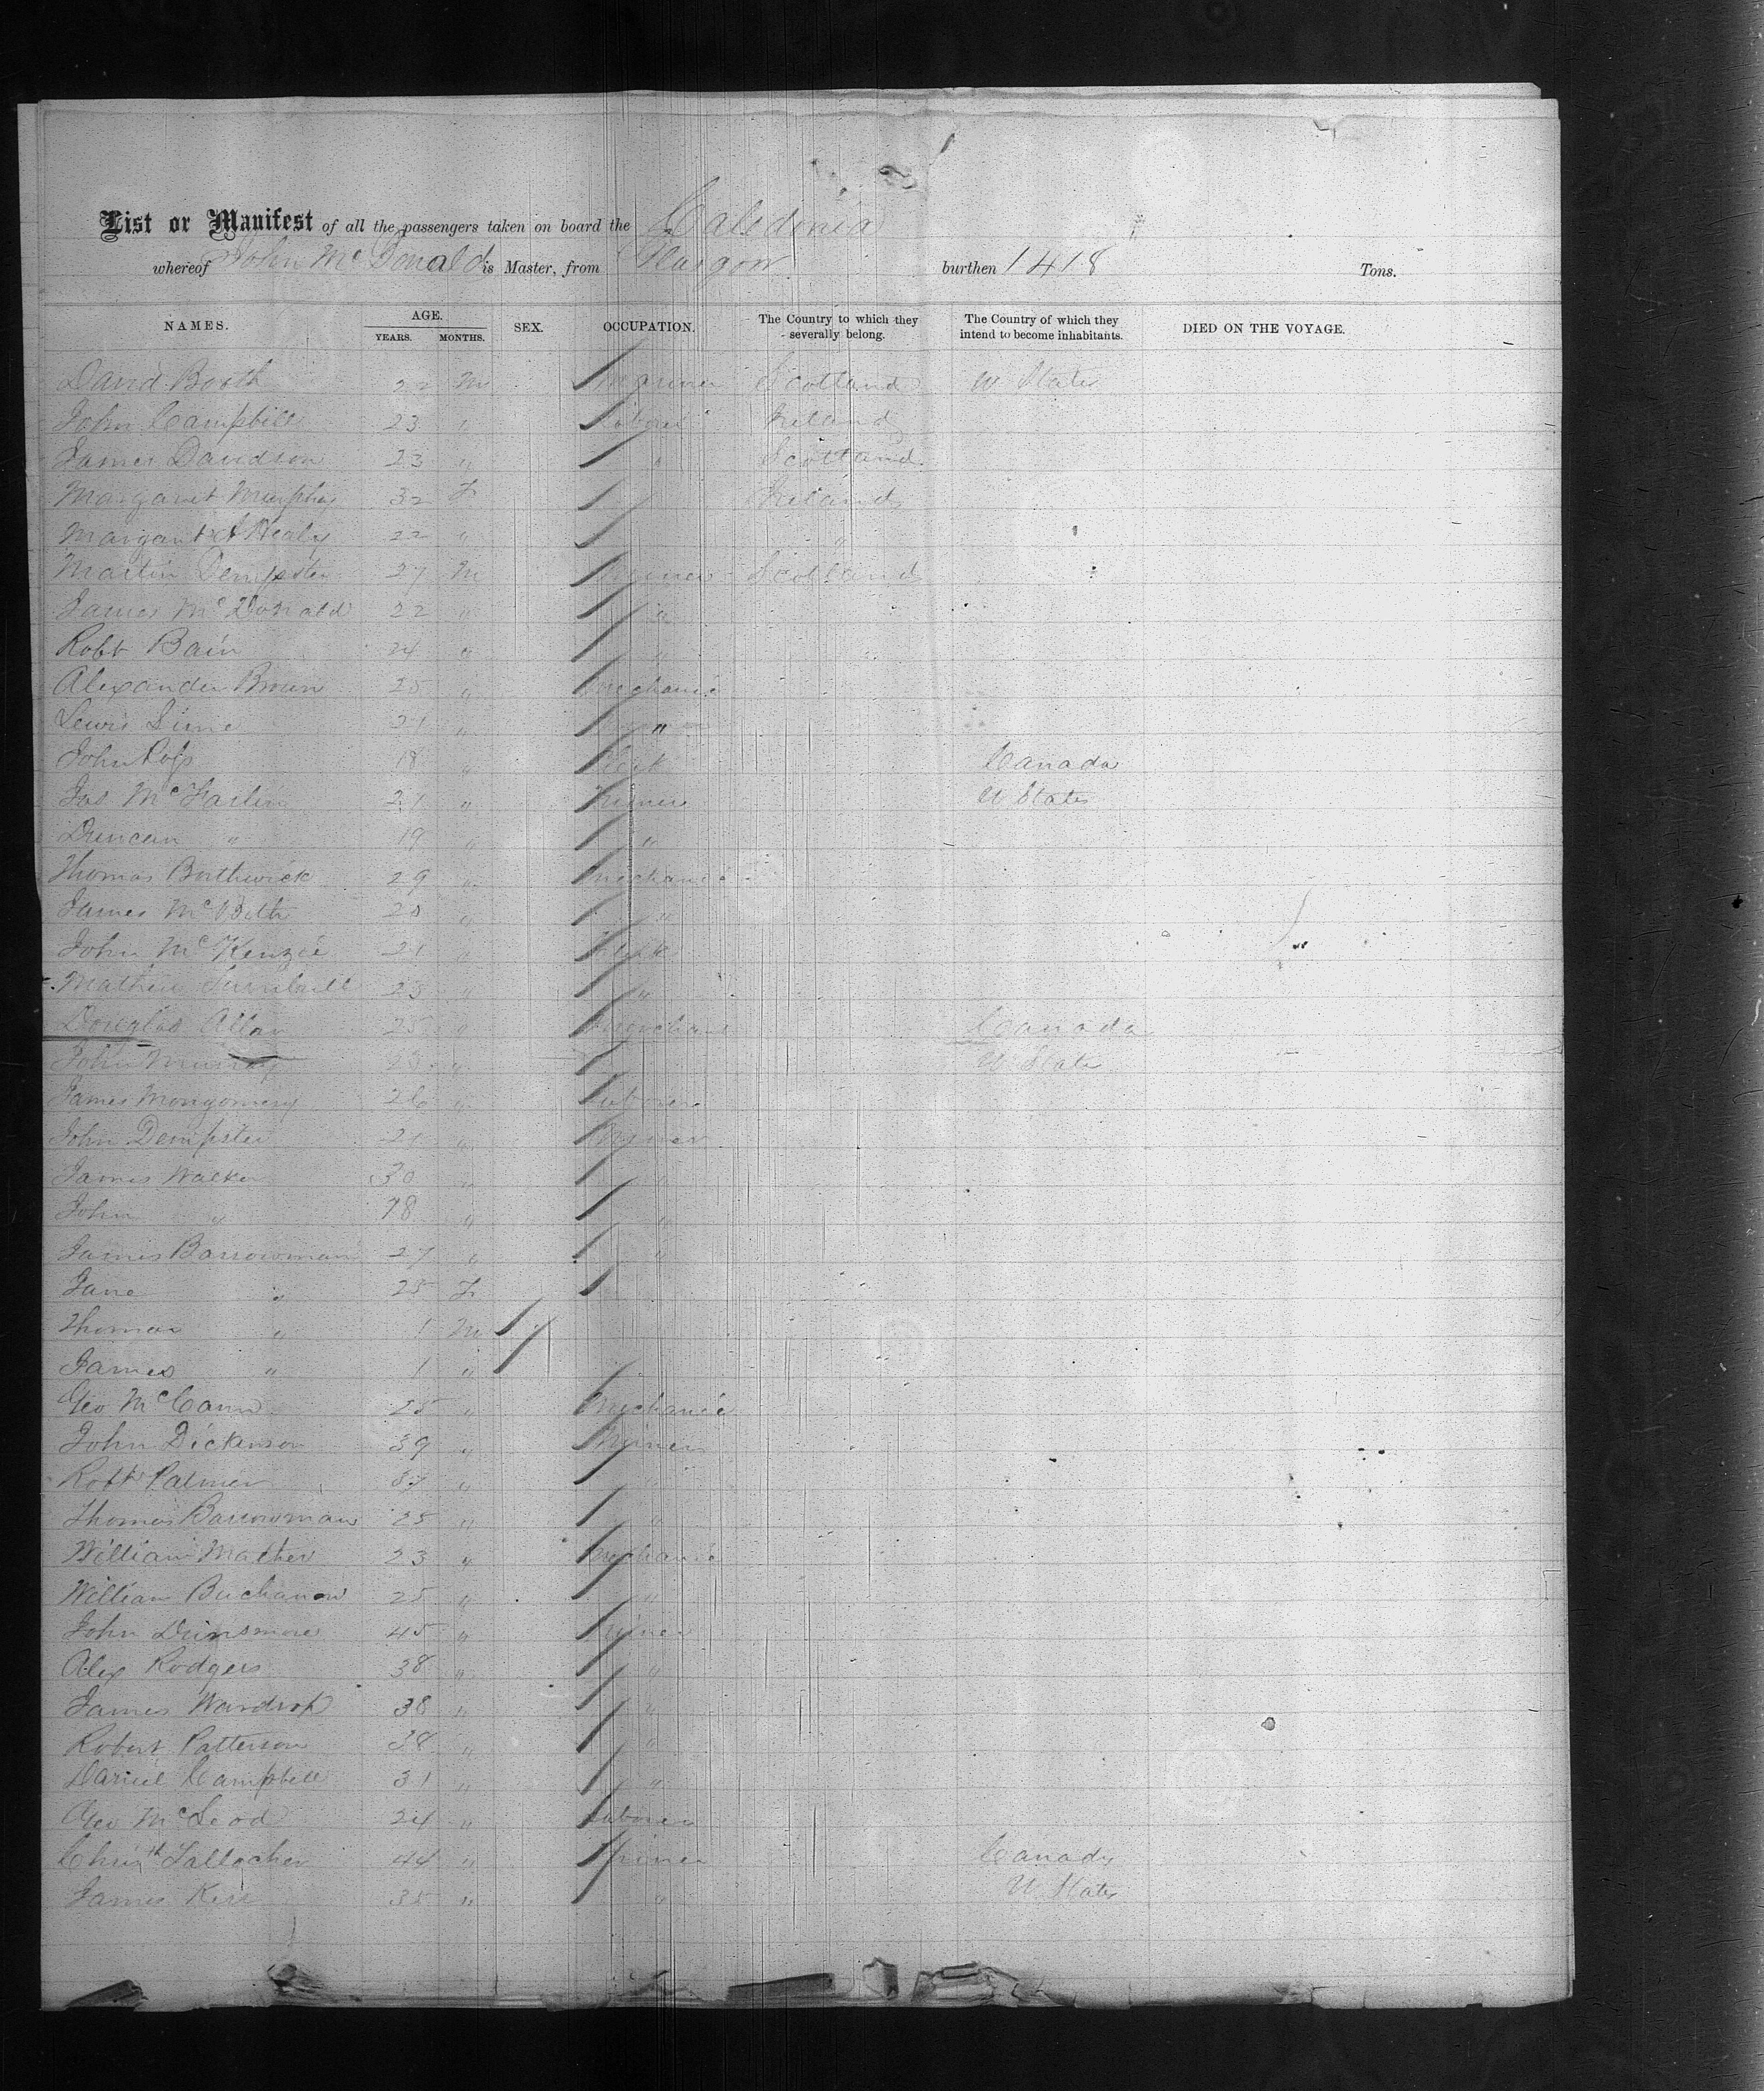 List or Manifest of all the passengers taken on board the Caledonia
whereof John Mc Donald is Master, from Glasgow burthen 1418 Tons.
NAMES. AGE. YEARS. MONTHS. SEX. OCCUPATION. The Country to which they severally belong. The Country of which they intend to become inhabitants. DIED ON THE VOYAGE.
David Booth 22 M Scotland U States
John Campbell 23 " Laborer Ireland
James Davidson 23 " " Scotland
Margaret Murphy 32 F Ireland
Margaret Healy 22 " "
Martin Dempster 27 M Miner Scotland
James Mc Donald 22 " "
Robt Bain 24 " "
Alexander Brown 25 " Mechanic
Lewis Sime 21 " "
John Ross 18 " Clerk Canada
Jas Mc Farlin 21 " U States
Duncan " 19 " "
Thomas Borthwick 29 " Mechanic
James Mc 20 " "
John Mc Kenzie 21 " Clerk
Mathew Turnbull 23 " "
Douglas Allan 25 " Canada
John Murray 23 " U States
James Montgomery 26 " Laborer
John Dempster 21 " Miner
James Walker 30 " "
John " 18 " "
James Barrowman 27 " "
Jane " 25 F
Thomas " 1 M
James " 1 "
Geo Mc Cann 25 " Mechanic
John Dickenson 39 " Miner
Robt Palmer 37 " "
Thomas Barrowman 25 " "
William Mather 23 " Mechanic
William Buchanan 25 " "
John Dunsmore 45 " Miner
Alex Rodgers 38 " "
James Wardrop 38 " "
Robert Patterson 38 " "
Daniel Campbell 31 " "
Geo Mc Leod 24 " Laborer
44 " Miner Canada
James Kerr 35 " " U States